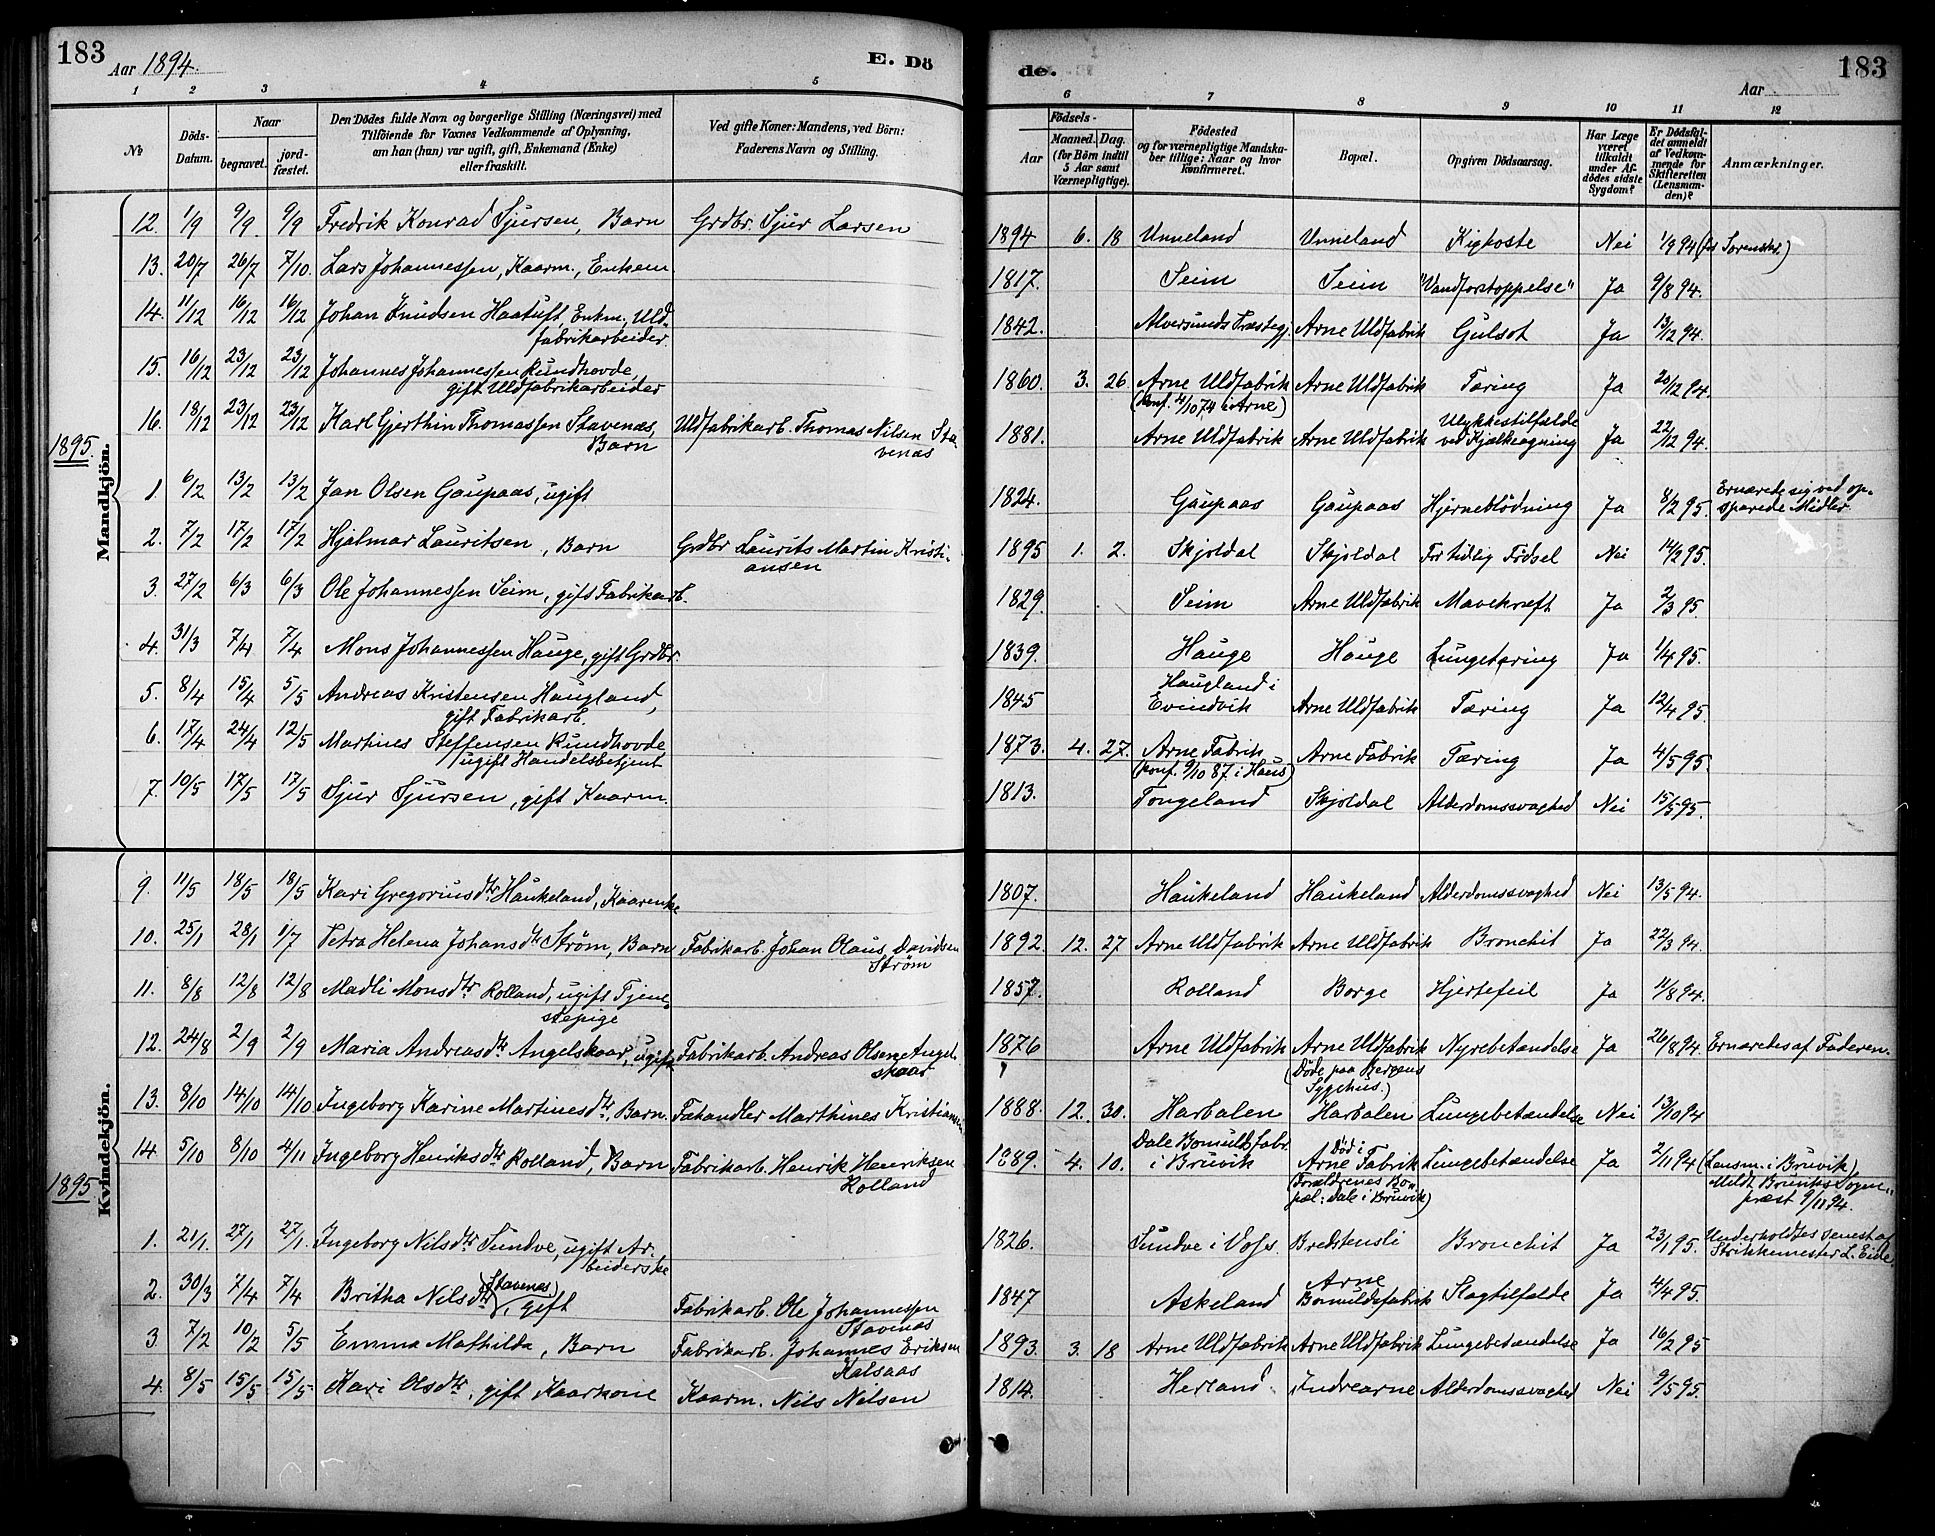 183
Aar 1894.
E. Dö
1 2 3 4 5
No
Döds-Datum.
Naar
begravet.
jord-fæstet.
Den Dödes fulde Navn og borgerlige Stilling (Næringsvei) med
Tilföiende for Voxnes Vedkommende af Oplysning,
om han (hun) var ugift, gift, Enkemand (Enke)
eller fraskilt.
Ved gifte Koner: Mandens, ved Börn:
Faderens Navn og Stilling.
Mandkjön.
12. 1/9 9/9. 9/9 Fredrik Konrad Sjursen, Barn Grdbr. Sjur Larsen
13. 20/7 26/7 7/10. Lars Johannessen, Kaarm., Enkem.
14. 11/12 16/12 16/12 Johan Knudsen Haatuft Enkm., Uld-
fabrikarbeider
15. 16/12 23/12 23/12 Johannes Johannessen Rundhovde,
gift Uldfabrikarbeider
16. 18/12 23/12 23/12 Karl Gjerthin Thomassen Stavenæs, Uldfabrikarb. Thomas Nilsen Sta-
Barn venæs
1895.
1. 6/2 13/2 13/2 Jan Olsen Gaupaas, ugift
2. 7/2 17/2 17/2 Hjalmar Lauritsen, Barn Grdbr Laurits Martin Kristi-
ansen
3. 27/2 6/3 6/3 Ole Johannessen Seim, gift Fabrikarb.
4. 31/3 7/4 7/4 Mons Johannessen Hauge, gift Grdbr.
5. 8/4 15/4 5/5 Andreas Kristensen Haugland,
gift Fabrikarb.
6. 17/4 24/4 12/5 Martines Steffensen Rundhovde
ugift Handelsbetjent
7. 10/5 17/5 17/5 Sjur Sjursen, gift Kaarm.
Kvindekjön.
9. 11/5 18/5 18/5 Kari Gregoriusdtr Haukeland, Kaarenke
10. 25/1 28/1 1/7 Petra Helena Johansdtr Ström, Barn Fabrikarb. Johan Olaus Davidsen
Ström
11. 8/8 12/8 12/8 Madli Monsdtr Rolland, ugift Tjene-
stepige
12. 24/8 2/9 2/9 Maria Andreasdtr Angelskaar, ugift Fabrikarb. Andreas Olsen Angel-
skaar
13. 8/10 14/10 14/10 Ingeborg Karine Martinesdtr, Barn. Fæhandler Marthines Kristiansen
14. 5/10 8/10 4/11 Ingeborg Henriksdtr Rolland, Barn Fabrikarb. Henrik Henriksen
Rolland
1895
1. 21/1. 27/1 27/1. Ingeborg Nilsdtr Sundve, ugift Ar-
beiderske
2. 30/3 7/4 7/4 Britha Nilsdtr (Stavenes), gift Fabrikarb. Ole Johannessen
Stavenæs
3. 7/2 10/2 5/5 Emma Mathilda, Barn Fabrikarb. Johannes Eriksen
Kalsaas
4. 8/5 15/5. 15/5 Kari Olsdtr, gift Kaarkone Kaarm. Nils Nilsen
de.
Aar
183
6 7 8 9 10 11 12
Födsels-
Aar
Maaned. Dag.
(for Börn indtil
5 Aar samt
Værnepligtige).
Födested
og for værnepligtige Mandska-
ber tillige: Naar og hvor
konfirmeret.
Bopæl.
Opgiven Dödsaarsag.
Har Læge
været
tilkaldt
under Af-
dödes sidste
Sygdom?
Er Dödsfal-
det anmeldt
af Vedkom-
mende for
Skifteretten
(Lensman-
den)?
Anmærkninger.
1894 6. 18 Unneland Unneland Kighoste Nei 1/9 94 (for Sorenskr.)
1817. Seim Seim "Vandforstoppelse" Ja 9/8 94.
1842. Alversunds Præstegj. Arne Uldfabrik Gulsot Ja 13/12 94.
1860. 3. 26. Arne Uldfabrik Arne Uldfabrik Tæring Ja 20/12 94.
(konf. 4/10 74 i Arne)
1881. Arne Uldfabrik Arne Uldfabrik Ulykkestilfælde
ved Kjælkeagning Ja 22/12 94.
1824. Gaupaas Gaupaas Hjerneblödning Ja 8/2 95. Ernærede sig ved op-
sparede Midler
1895 1. 2. Skjoldal Skjoldal For tidlig Födsel Nei 14/2 95.
1829. Seim Arne Uldfabrik Mavekræft Ja 2/3 95.
1839. Hauge Hauge Lungetæring Ja 1/4 95.
1845 Haugland i
Evindvik Arne Uldfabrik Tæring Ja 12/4 95.
1873. 4. 27. Arne Fabrik Arne Fabrik Tæring Ja 4/5 95.
(konf. 9/10 87. i Haus)
1813. Tongeland Skjoldal Alderdomssvaghed Nei 15/5 95.
1807. Haukeland Haukeland Alderdomssvaghed Nei 13/5 94.
1892. 12. 27 Arne Uldfabrik Arne Uldfabrik Bronchit Ja 22/3 94.
1857. Rolland Borge Hjertefeil Ja 11/8 94.
1876 Arne Uldfabrik Arne Uldfabrik Nyrebetændelse Ja 26/8 94. Ernæredes af Faderen.
(Döde paa Bergens
Sygehus.)
1888. 12. 30. Harbalen Harbalen Lungebetændelse Nei 13/10 94
1889. 4. 10. Dale Bomuldsfabr.
i Bruvik Död i
Arne Fabrik Lungebetændelse Ja 2/11 94 (Lensm. i Bruvik)
(Forældrenes Bo-
pæl: Dale i Bruvik) Meldt Bruviks Sogne-
præst 9/11 94.
1826. Sundve i Voss. Bredstensli Bronchit Ja 23/1 95. Underholdtes senest af
Strikkemester L. Eide.
1847 Askeland Arne
Bomuldsfabrik Slagtilfælde Ja 4/4 95.
1893. 3. 18 Arne Uldfabrik Arne Uldfabrik Lungebetændelse Ja 16/2 95
1814. Herland Indrearne Alderdomssvaghed Nei 9/5 95.